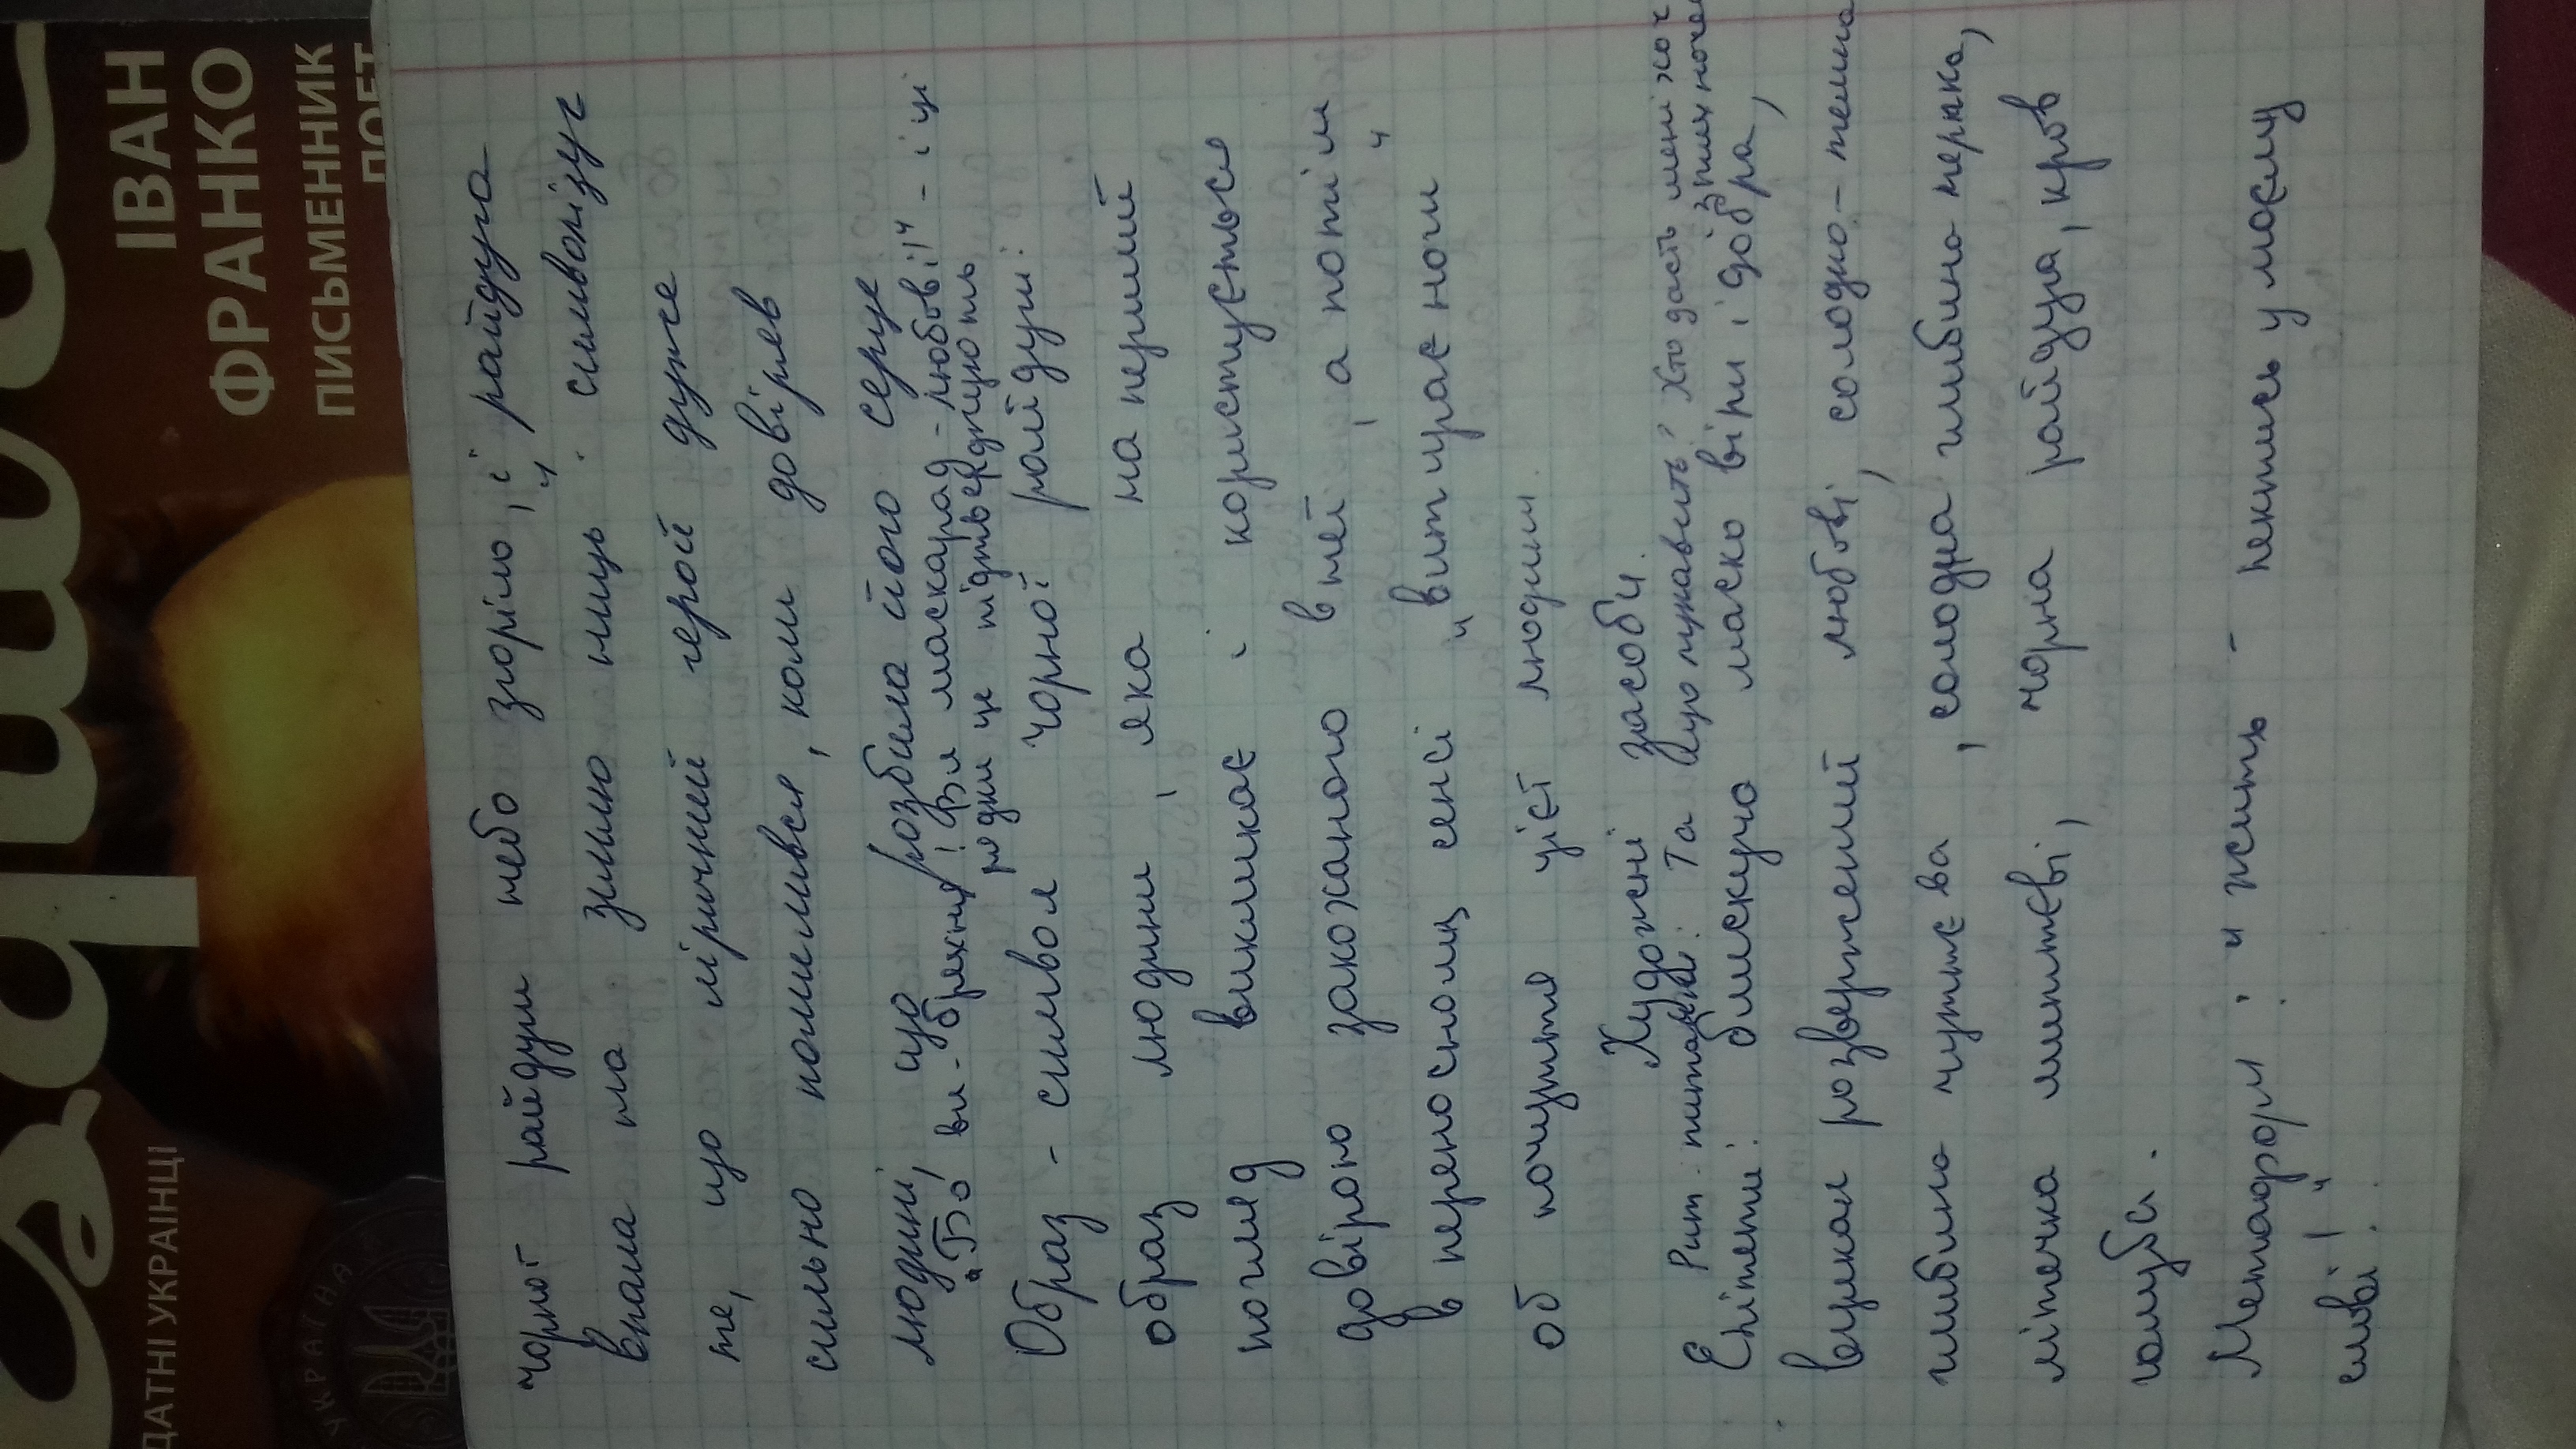 ІВАН
ФРАНКО
ПИСЬМЕННИК
ПОЕТ
ДАТНІ УКРАЇНЦІ
УКРАЇНА
чорної райдуги небо згоріло, і „райдуга
впала на землю ниць". символізує
те, що ліричний герой дуже
сильно помилився, коли довірився
людині, що розбила його серце.
„Бо ви - брехня! Ви маскарад - любові!" - і ці
рядки це підтверджують
Образ - символ чорної райдуги:
образ людини, яка на перший
погляд викликає і користується
довірою закоханого в неї, а потім „
в переносному сенсі „витирає ноги
об почуття цієї людини.
Художні засоби.
Рит. питання: Та що лукавить? Хто дасть мені хоч
з тих ноче
Епітети: блискуча маска віри і добра,
вулкан розверстий любові, солодко-темна
глибина чуттєва, солодка глибина терпка,
літечка миттєві, чорна райдуга, кров
голуба.
Метафори: „жить - пектись у моєму
слові!"